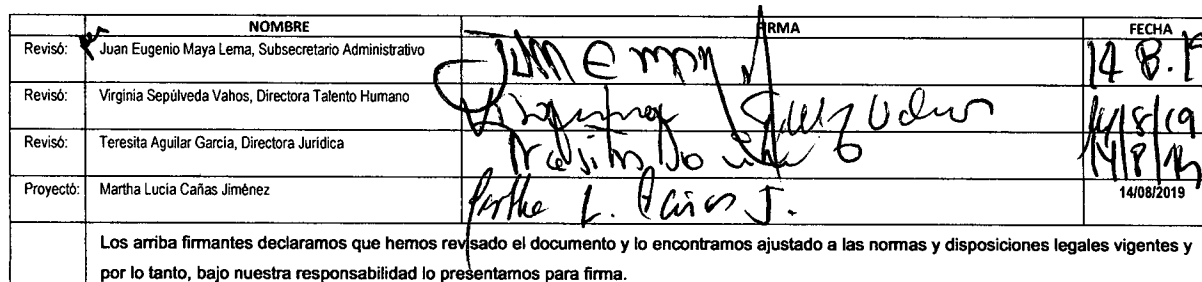 NOMBRE FIRMA FECHA
Revisó: Juan Eugenio Maya Lema, Subsecretario Administrativo 14 8.19
Revisó: Virginia Sepúlveda Vahos, Directora Talento Humano 14/8/19
Revisó: Teresita Aguilar García, Directora Jurídica 14/8/19
Proyectó: Martha Lucía Cañas Jiménez Martha L. Cañas J. 14/08/2019
Los arriba firmantes declaramos que hemos revisado el documento y lo encontramos ajustado a las normas y disposiciones legales vigentes y
por lo tanto, bajo nuestra responsabilidad lo presentamos para firma.